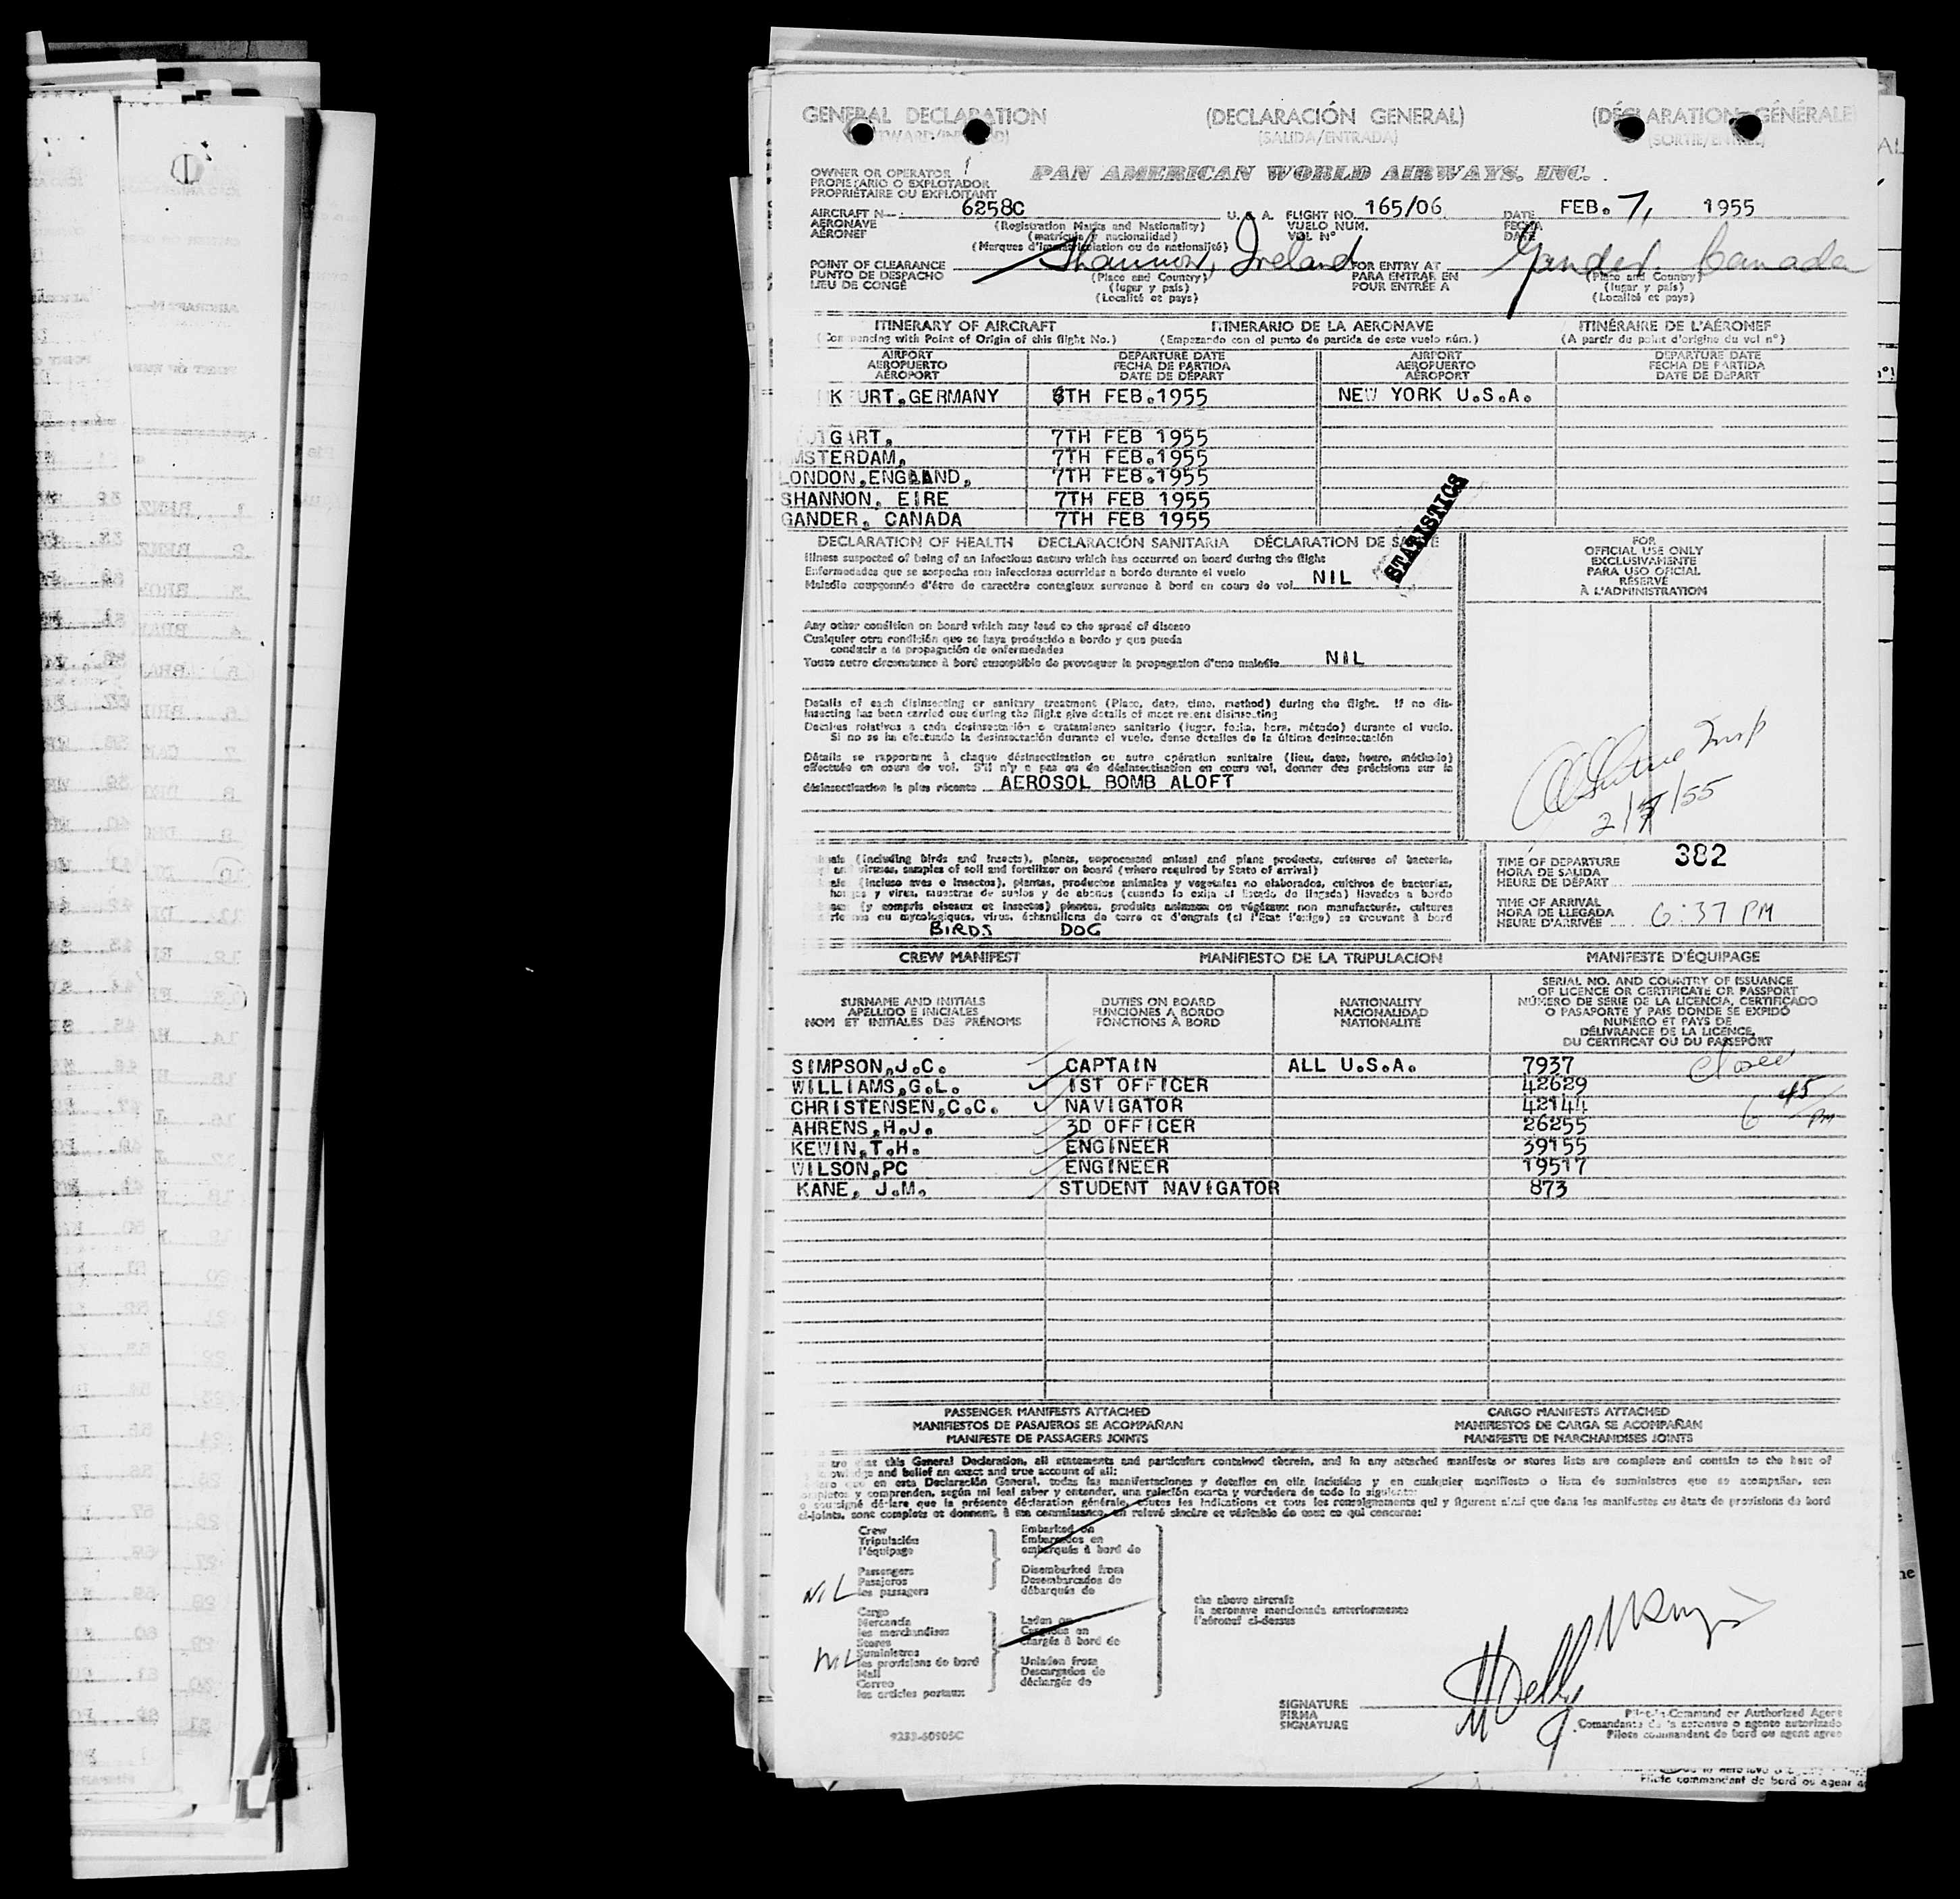 GENERAL DECLARATION (DECLARACIÓN GENERAL) GÉNÉRALE
(SALIDA/ENTRADA)
OWNER OR OPERATOR
PROPIETARIO O EXPLOTADOR
PROPRIÉTAIRE OU EXPLOITANT
PAN AMERICAN WORLD AIRWAYS, INC.
AIRCRAFT N 6258C U. S. A. FLIGHT NO. 165/06 DATE FEB. 7, 1955
AERONAVE (Registration Marks and Nationality) VUELO NUM. FECHA
AÉRONEF (matrícula y nacionalidad) VOL Nº DATE
(Marques d'immatriculation ou de nationalité)
POINT OF CLEARANCE Shannon, Ireland FOR ENTRY AT Gander, Canada
PUNTO DE DESPACHO (Place and Country) PARA ENTRAR EN (Place and Country)
LIEU DE CONGÉ (lugar y país) POUR ENTRÉE A (lugar y país)
(Localité et pays) (Localité et pays)
ITINERARY OF AIRCRAFT ITINERARIO DE LA AERONAVE ITINÉRAIRE DE L'AÉRONEF
with Point of Origin of this flight No.) (Empezando con el punto de partida de este vuelo núm.) (A partir du point d'origine du vol nº)
AIRPORT DEPARTURE DATE AIRPORT DEPARTURE DATE
AEROPUERTO FECHA DE PARTIDA AEROPUERTO FECHA DE PARTIDA
AÉROPORT DATE DE DÉPART AÉROPORT DATE DE DÉPART
GERMANY 6TH FEB.1955 NEW YORK U.S.A.
7TH FEB 1955
MSTERDAM, 7TH FEB.1955
LONDON,ENGLAND, 7TH FEB.1955
SHANNON, EIRE 7TH FEB 1955
GANDER, CANADA 7TH FEB 1955
STATISTICS
DECLARATION OF HEALTH DECLARACIÓN SANITARIA DÉCLARATION DE SANTÉ
Illness suspected of being of an infectious nature which has occurred on board during the flight
Enfermedades que se sospecha son infecciosas ocurridas a bordo durante el vuelo
Maladie soupçonnée d'être de caractère contagieux survenue à bord en cours de vol NIL
Any other condition on board which may lead to the spread of disease
Cualquier otra condición que se haya producido a bordo y que pueda
conducir a la propagación de enfermedades
Toute autre circonstance à bord susceptible de provoquer la propagation d'une maladie NIL
Details of each disinsecting or sanitary treatment (Place, date, time, method) during the flight. If no dis-
insecting has been carried out during the flight give details of most recent disinsecting
Detalles relativos a cada desinsectación o tratamiento sanitario (lugar, fecha, hora, método) durante el vuelo.
Si no se ha efectuado la desinsectación durante el vuelo, dense detalles de la última desinsectación
Détails se rapportant à chaque désinsectisation ou autre opération sanitaire (lieu, date, heure, méthode)
effectuée en cours de vol. S'il n'y a pas eu de désinsectisation en cours vol, donner des précisions sur la
désinsectisation la plus récente AEROSOL BOMB ALOFT
FOR
OFFICIAL USE ONLY
EXCLUSIVAMENTE
PARA USO OFICIAL
RÉSERVÉ
À L'ADMINISTRATION
2/7/55
(including birds and insects), plants, unprocessed animal and plant products, cultures of bacteria,
and viruses, samples of soil and fertilizer on board (where required by State of arrival)
(incluso aves o insectos), plantas, productos animales y vegetales no elaborados, cultivos de bacterias,
y virus, muestras de suelos y de abonos (cuando lo exija el Estado de llegada) llevados a bordo
(y compris oiseaux et insectes) plantes, produits animaux ou végétaux non manufacturés, cultures
ou mycologiques, virus, échantillons de terre et d'engrais (si l'État l'exige) se trouvant à bord
BIRDS DOG
TIME OF DEPARTURE 382
HORA DE SALIDA
HEURE DE DÉPART
TIME OF ARRIVAL
HORA DE LLEGADA 6:37 PM
HEURE D'ARRIVÉE
CREW MANIFEST MANIFIESTO DE LA TRIPULACION MANIFESTE D'ÉQUIPAGE
SURNAME AND INITIALS DUTIES ON BOARD NATIONALITY
APELLIDO E INICIALES FUNCIONES A BORDO NACIONALIDAD
NOM ET INITIALES DES PRÉNOMS FONCTIONS À BORD NATIONALITÉ
SERIAL NO. AND COUNTRY OF ISSUANCE
OF LICENCE OR CERTIFICATE OR PASSPORT
NÚMERO DE SERIE DE LA LICENCIA, CERTIFICADO
O PASAPORTE Y PAIS DONDE SE EXPIDÓ
NUMÉRO ET PAYS DE
DÉLIVRANCE DE LA LICENCE,
DU CERTIFICAT OU DU PASSEPORT
SIMPSON,J.C. CAPTAIN ALL U.S.A. 7937
WILLIAMS,G.L. 1ST OFFICER 42629
CHRISTENSEN,C.C. NAVIGATOR 42144
AHRENS,H.J. 3D OFFICER 26255
KEWIN,T.H. ENGINEER 39155
WILSON,PC ENGINEER 19517
KANE, J.M. STUDENT NAVIGATOR 873
6 45 PM
PASSENGER MANIFESTS ATTACHED CARGO MANIFESTS ATTACHED
MANIFIESTOS DE PASAJEROS SE ACOMPAÑAN MANIFIESTOS DE CARGA SE ACOMPAÑAN
MANIFESTE DE PASSAGERS JOINTS MANIFESTE DE MARCHANDISES JOINTS
that this General Declaration, all statements and particulars contained therein, and in any attached manifests or stores lists are complete and contain to the best of
and belief an exact and true account of all:
que en esta Declaración General, todas las manifestaciones y detalles en ella incluidos y en cualquier manifiesto o lista de suministros que se acompañan, son
y comprenden, según mi leal saber y entender, una relación exacta y verdadera de todo lo siguiente:
soussigné déclare que la présente déclaration générale, toutes les indications et tous les renseignements qui y figurent ainsi que dans les manifestes ou états de provisions de bord
ci-joints, sont complets et donnent, à ma connaissance, un relevé sincère et véritable de tout ce qui concerne:
Crew Embarked on
Tripulación Embarcados en
l'équipage embarqués à bord de
Passengers Disembarked from
NIL Pasajeros Desembarcados de
les passagers débarqués de
Cargo
Mercancía Laden on
les merchandises Cargados en
Stores chargés à bord de
NIL Suministros
les provisions de bord Unladen from
Mail Descargados de
Correo déchargés de
les articles postaux
the above aircraft
la aeronave mencionada anteriormente
l'aéronef ci-dessus
SIGNATURE
FIRMA
SIGNATURE
Pilot-in-Command or Authorized Agent
Comandante de la aeronave o agente autorizado
Pilote commandant de bord ou agent agree
9233-60905C
Pilote commandant de bord ou agent